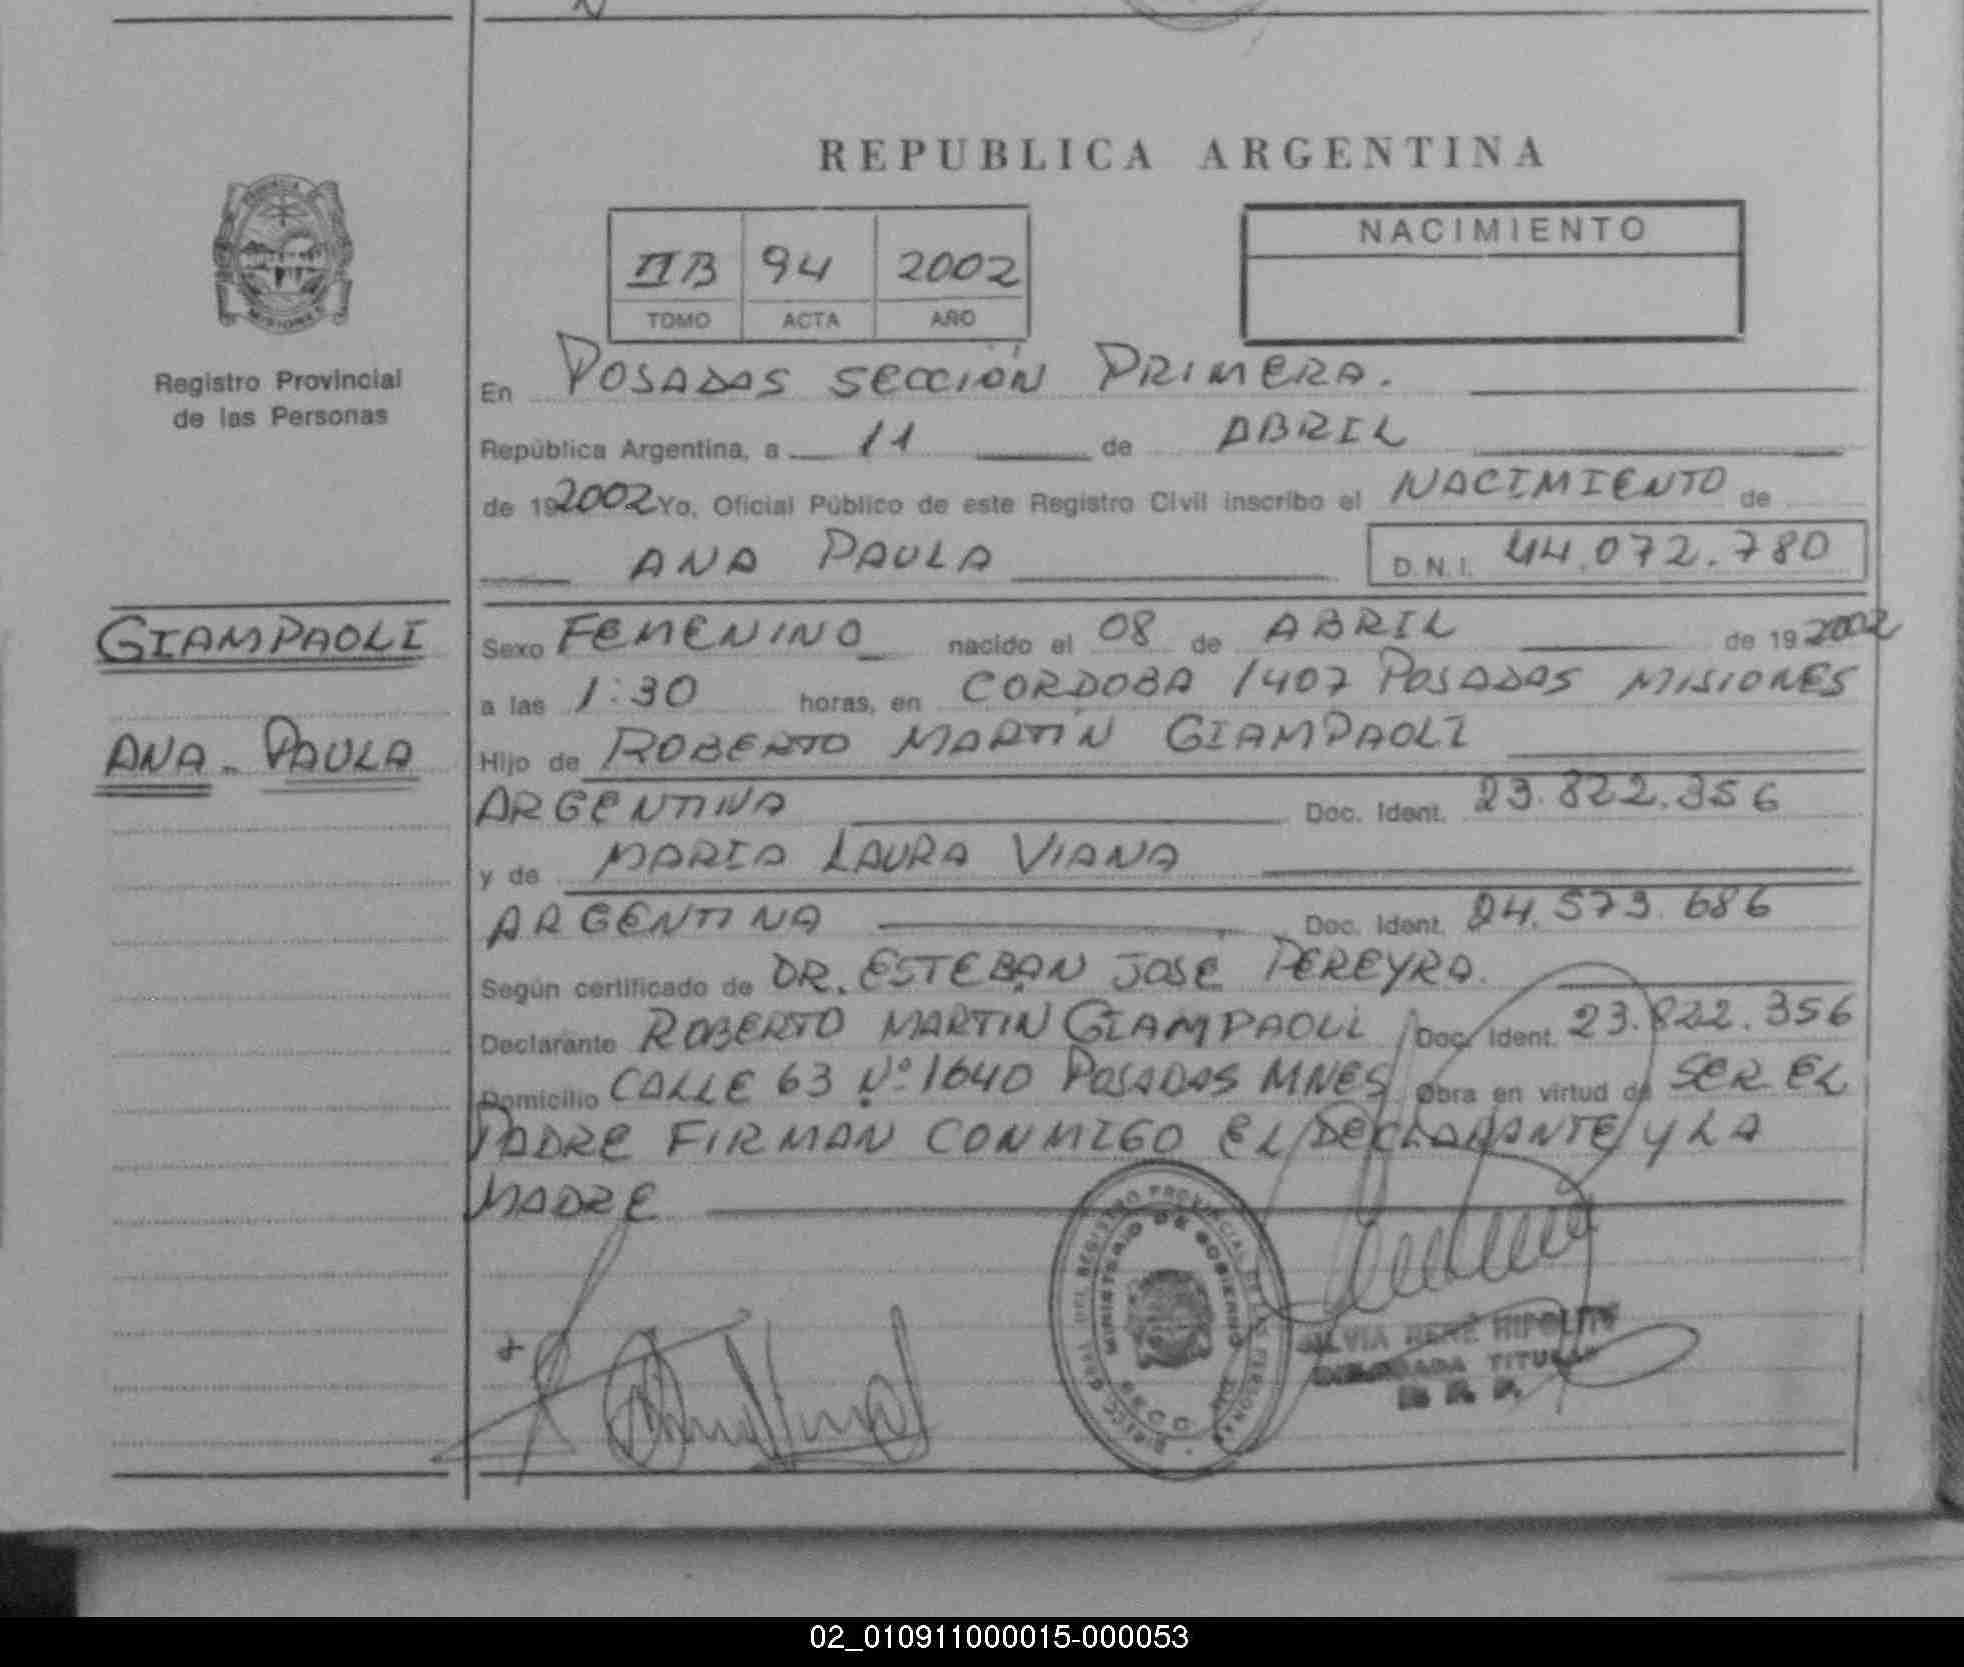 REPUBLICA ARGENTINA
IIB 94 2002
TOMO ACTA AÑO
NACIMIENTO
MISIONES
Registro Provincial
de las Personas
En POSADAS SECCIÓN PRIMERA.
República Argentina, a 11 de ABRIL
de 192002 Yo, Oficial Público de este Registro Civil inscribo el NACIMIENTO de
ANA PAULA D.N.I. 44.072.780
GIAMPAOLI
ANA - PAULA
Sexo FEMENINO nacido el 08 de ABRIL de 19 2002
a las 1:30 horas, en CORDOBA 1407 POSADAS MISIONES
Hijo de ROBERTO MARTÍN GIAMPAOLI
ARGENTINA Doc. Ident. 23.822.356
y de MARIA LAURA VIANA
ARGENTINA Doc. Ident. 24.573.686
Según certificado de DR. ESTEBAN JOSÉ PEREYRA.
Declarante ROBERTO MARTIN GIAMPAOLI Doc. Ident. 23.822.356
Domicilio CALLE 63 Nº 1640 POSADAS MNES Obra en virtud de SER EL
PADRE FIRMAN CONMIGO EL DECLARANTE Y LA
MADRE
REGISTRO PROVINCIAL DE LAS PERSONAS
MINISTERIO DE GOBIERNO
SILVIA RENÉ HIPOLITO
DELEGADA TITULAR
02_010911000015-000053